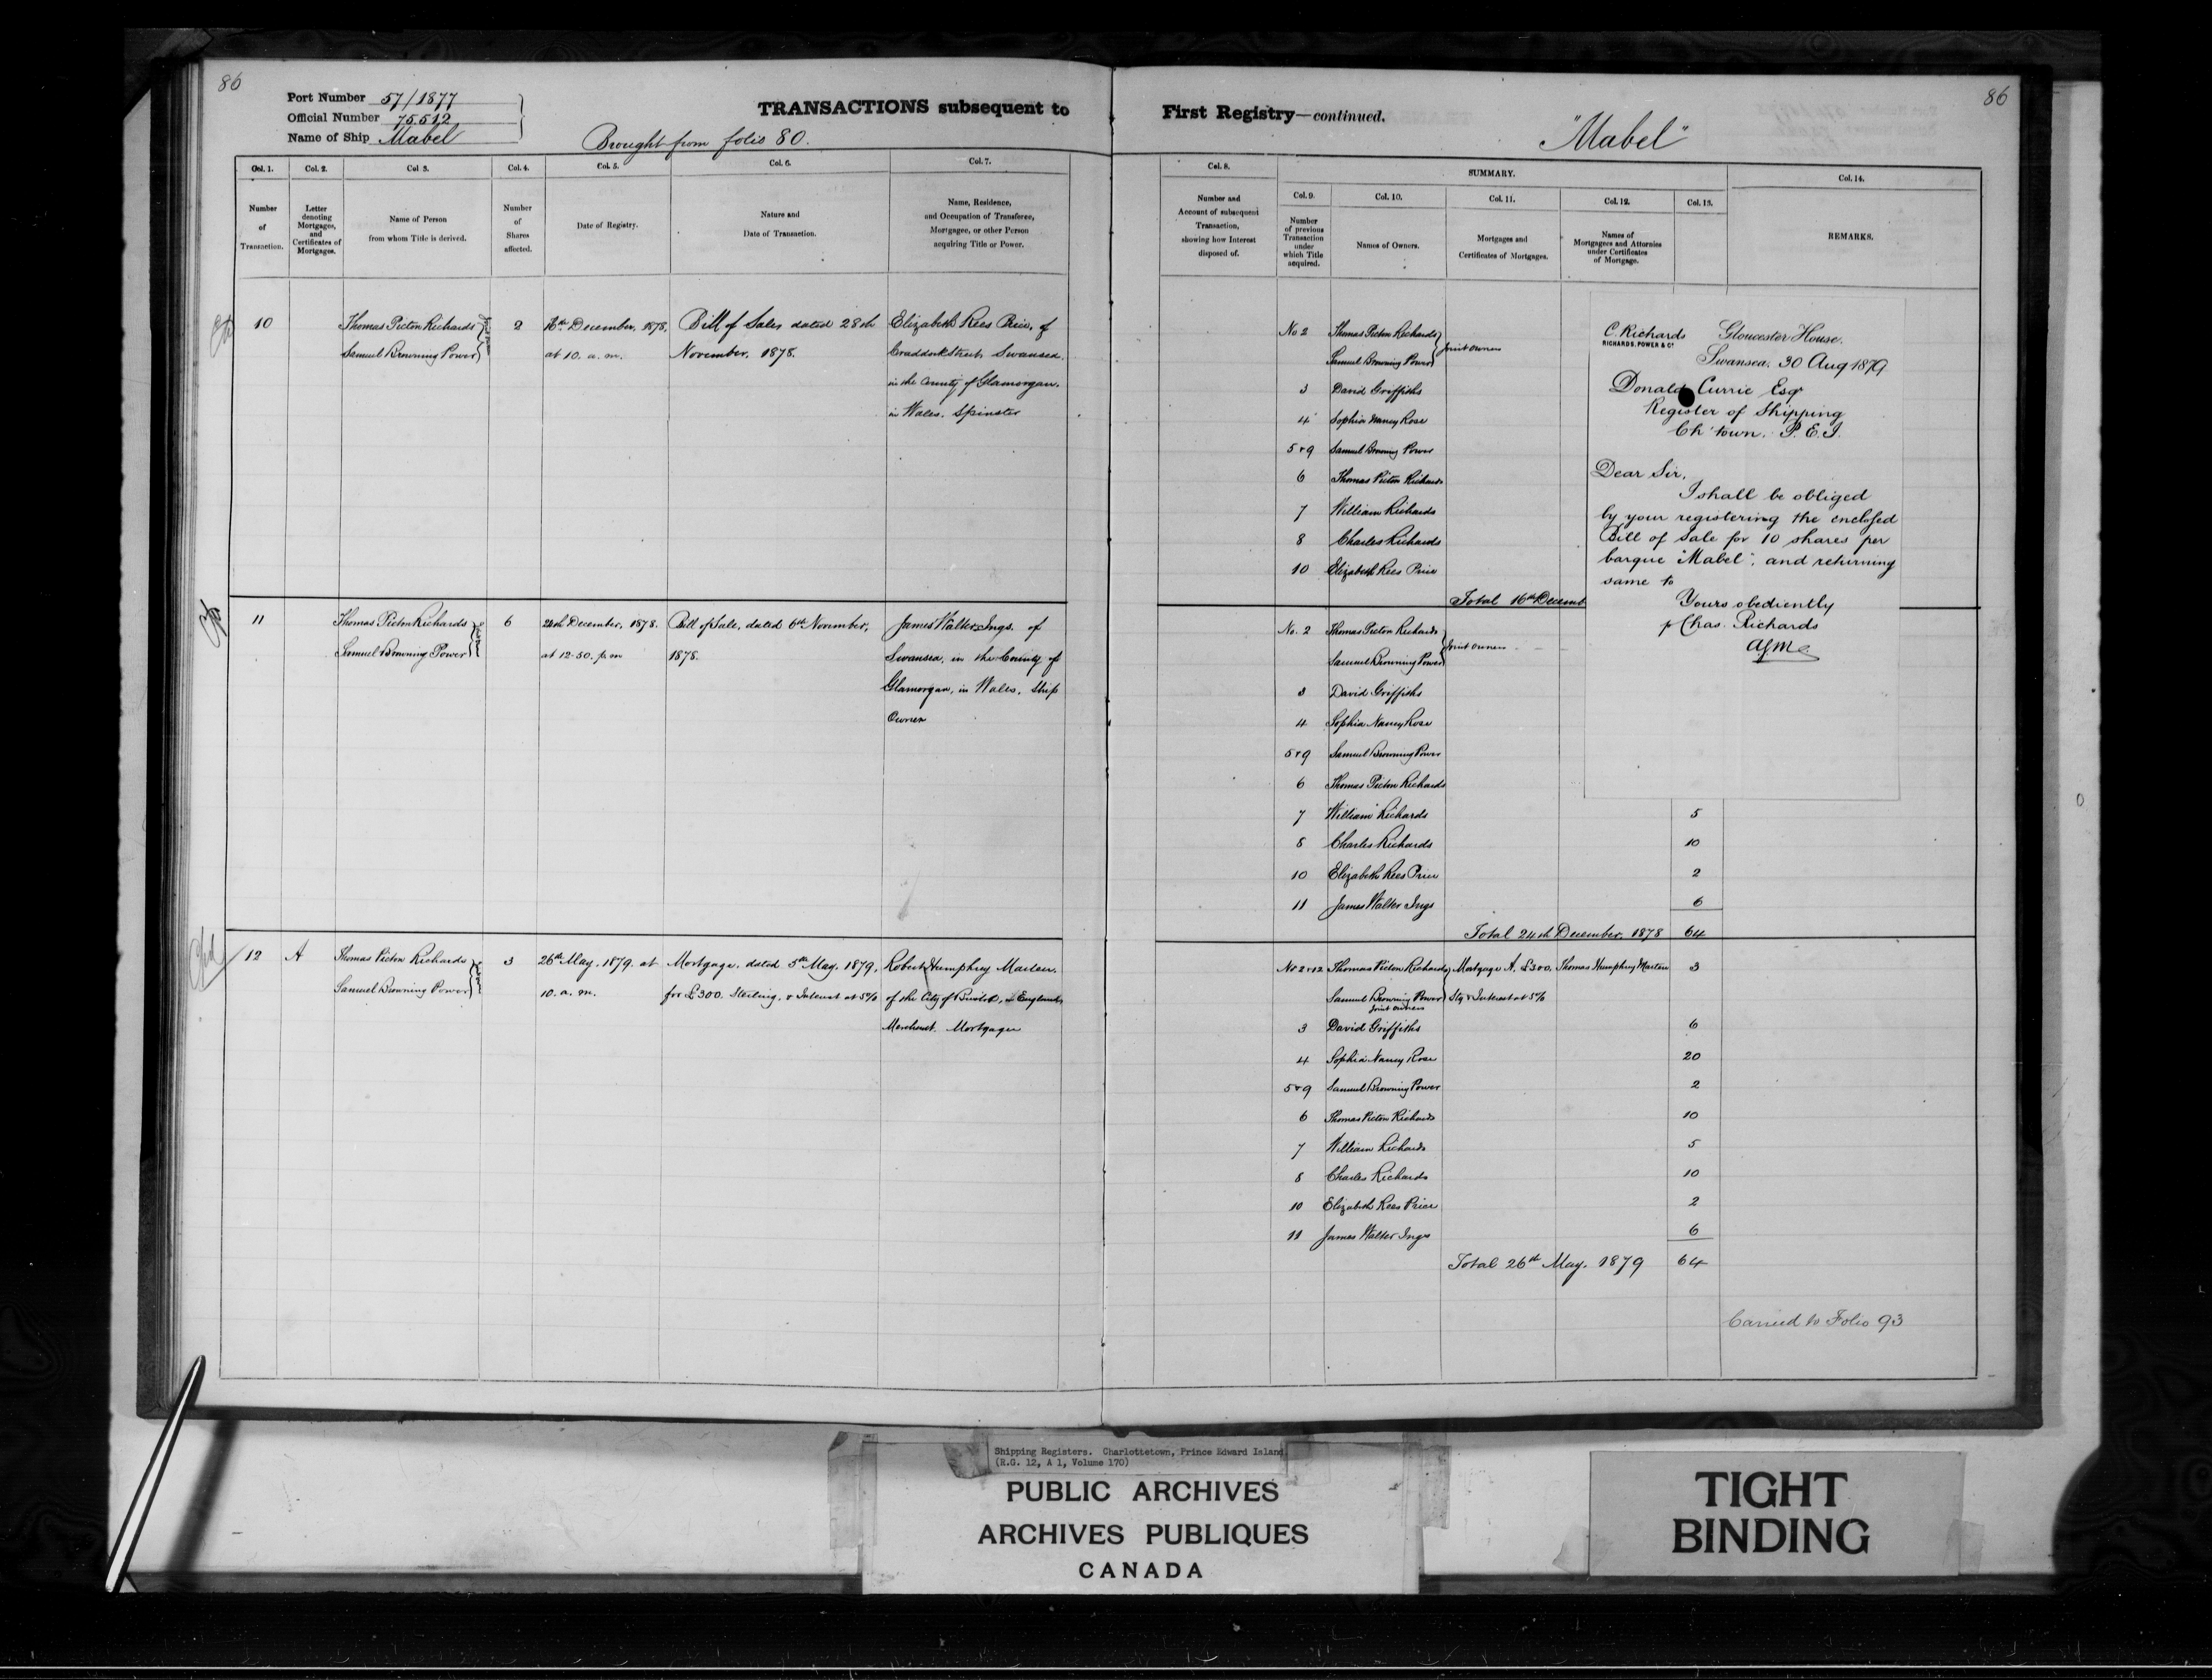 86
Port Number 57/1877
Official Number 75512
Name of Ship Mabel
TRANSACTIONS subsequent to
Brought from folio 80.
Col. 1.
Col. 2.
Col 3.
Col. 4.
Col. 5.
Col. 6.
Col. 7.
Number
of
Transaction.
Letter
denoting
Mortgages,
and
Certificates of
Mortgages.
Name of Person
from whom Title is derived.
Number
of
Shares
affected.
Date of Registry.
Nature and
Date of Transaction.
Name, Residence,
and Occupation of Transferee,
Mortgagee, or other Person
acquiring Title or Power.
10
Thomas Picton Richards
Samuel Browning Power
2
16th December, 1878,
at 10. a. m.
Bill of Sales dated 28th
November, 1878.
Elizabeth Rees Price, of
Craddock Street, Swansea
in the County of Glamorgan.
in Wales. Spinster
11
Thomas Picton Richards
Samuel Browning Power
6
24th December, 1878.
at 12-50. p. m
Bill of Sale, dated 6th November,
1878.
James Walter Ings. of
Swansea, in the County of
Glamorgan, in Wales, Ship
Owner
12
A
Thomas Picton Richards
Samuel Browning Power
3
26th May, 1879. at
10. a. m.
Mortgage, dated 5th May, 1879,
for £300. Sterling, & Interest at 5%
Robert Humphry Marten.
of the City of Bristol, in England
Merchant. Mortgagee
86
First Registry—continued.
"Mabel"
Col. 8.
SUMMARY.
Col. 14.
Col. 9.
Col. 10.
Col. 11.
Col. 12.
Col. 13.
Number and
Account of subsequent
Transaction,
showing how Interest
disposed of.
Number
of previous
Transaction
under
which Title
acquired.
Names of Owners.
Mortgages and
Certificates of Mortgages.
Names of
Mortgagees and Attornies
under Certificates
of Mortgage.
REMARKS.
No 2 Thomas Picton Richards
Samuel Browning Power
Joint owners
3 David Griffiths
4 Sophia Nancy Rose
5 & 9 Samuel Browning Power
6 Thomas Picton Richards
7 William Richards
8 Charles Richards
10 Elizabeth Rees Price
Total 16th Decemb
C. Richards
RICHARDS, POWER & Co
Gloucester House.
Swansea. 30 Aug 1879
Donald Currie Esqr
Register of Shipping
Ch'town. P. E. I.
Dear Sir,
I shall be obliged
by your registering the enclosed
Bill of Sale for 10 shares per
barque "Mabel", and returning
same to
Yours obediently
p Chas. Richards
No. 2 Thomas Picton Richards
Samuel Browning Power
Joint owners
3 David Griffiths
4 Sophia Nancy Rose
5 & 9 Samuel Browning Power
6 Thomas Picton Richards
7 William Richards 5
8 Charles Richards 10
10 Elizabeth Rees Price 2
11 James Walter Ings 6
Total 24th December, 1878 64
No 2 & 12 Thomas Picton Richards Mortgage A. £300. Thomas Humphry Marten 3
Samuel Browning Power Stg & Interest at 5%
Joint owners
3 David Griffiths 6
4 Sophia Nancy Rose 20
5 & 9 Samuel Browning Power 2
6 Thomas Picton Richards 10
7 William Richards 5
8 Charles Richards 10
10 Elizabeth Rees Price 2
11 James Walter Ings 6
Total 26th May. 1879 64
Carried to Folio 93
Shipping Registers. Charlottetown, Prince Edward Island
(R.G. 12, A 1, Volume 170)
PUBLIC ARCHIVES
ARCHIVES PUBLIQUES
CANADA
TIGHT
BINDING